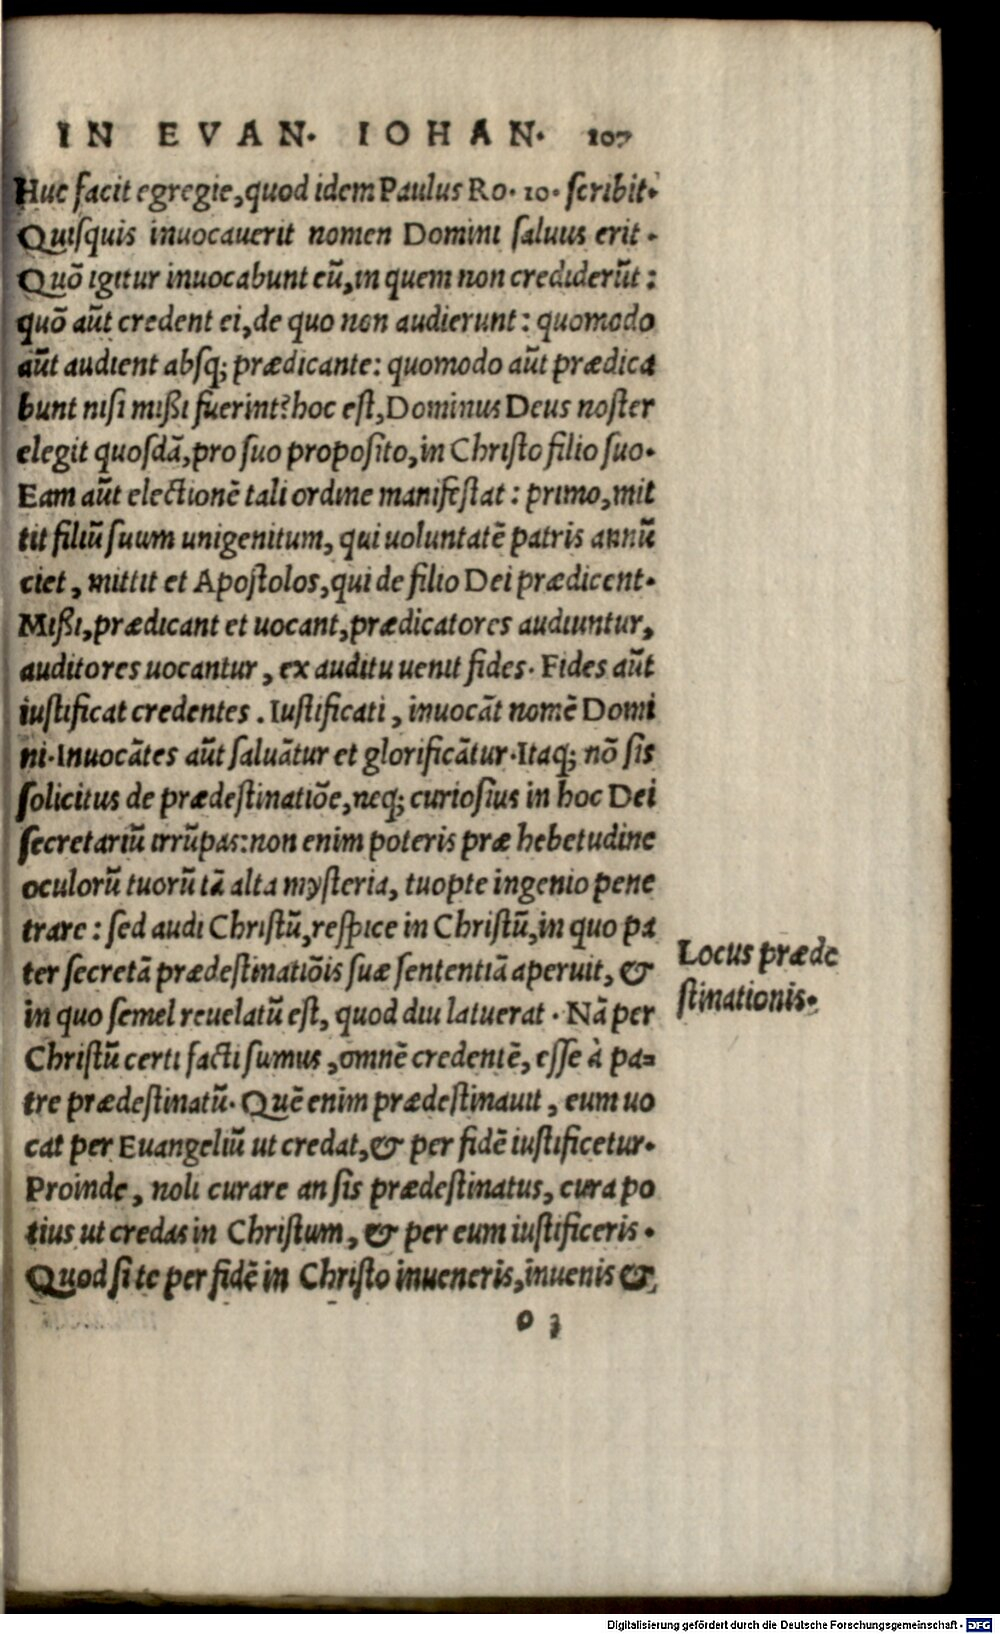 IN EVAN. IOHAN. 107
Huc facit egregie, quod idem Paulus Ro. 10. scribit.
Quisquis inuocauerit nomen Domini saluus erit.
Quō igitur inuocabunt eū, in quem non crediderūt:
quō aūt credent ei, de quo non audierunt: quomodo
aūt audient absq; prædicante: quomodo aūt prædica
bunt nisi mißi fuerint? hoc est, Dominus Deus noster
elegit quosdā, pro suo proposito, in Christo filio suo.
Eam aūt electionē tali ordine manifestat: primo, mit
tit filiū suum unigenitum, qui uoluntatē patris annū
ciet, mittit et Apostolos, qui de filio Dei prædicent.
Mißi, prædicant et uocant, prædicatores audiuntur,
auditores uocantur, ex auditu uenit fides. Fides aūt
iustificat credentes. Iustificati, inuocāt nomē Domi
ni. Inuocātes aūt saluātur et glorificātur. Itaq; nō sis
solicitus de prædestinatiōe, neq; curiosius in hoc Dei
secretariū irrūpas: non enim poteris præ hebetudine
oculorū tuorū tā alta mysteria, tuopte ingenio pene
trare: sed audi Christū, respice in Christū, in quo pa
ter secretā prædestinatiōis suæ sententiā aperuit, &
in quo semel reuelatū est, quod diu latuerat. Nā per
Christū certi facti sumus, omnē credentē, esse à pa=
tre prædestinatū. Quē enim prædestinauit, eum uo
cat per Euangeliū ut credat, & per fidē iustificetur.
Proinde, noli curare an sis prædestinatus, cura po
tius ut credas in Christum, & per eum iustificeris.
Quod si te per fidē in Christo inueneris, inuenis &,
o 3
Locus præde
stinationis.
Digitalisierung gefördert durch die Deutsche Forschungsgemeinschaft - DFG